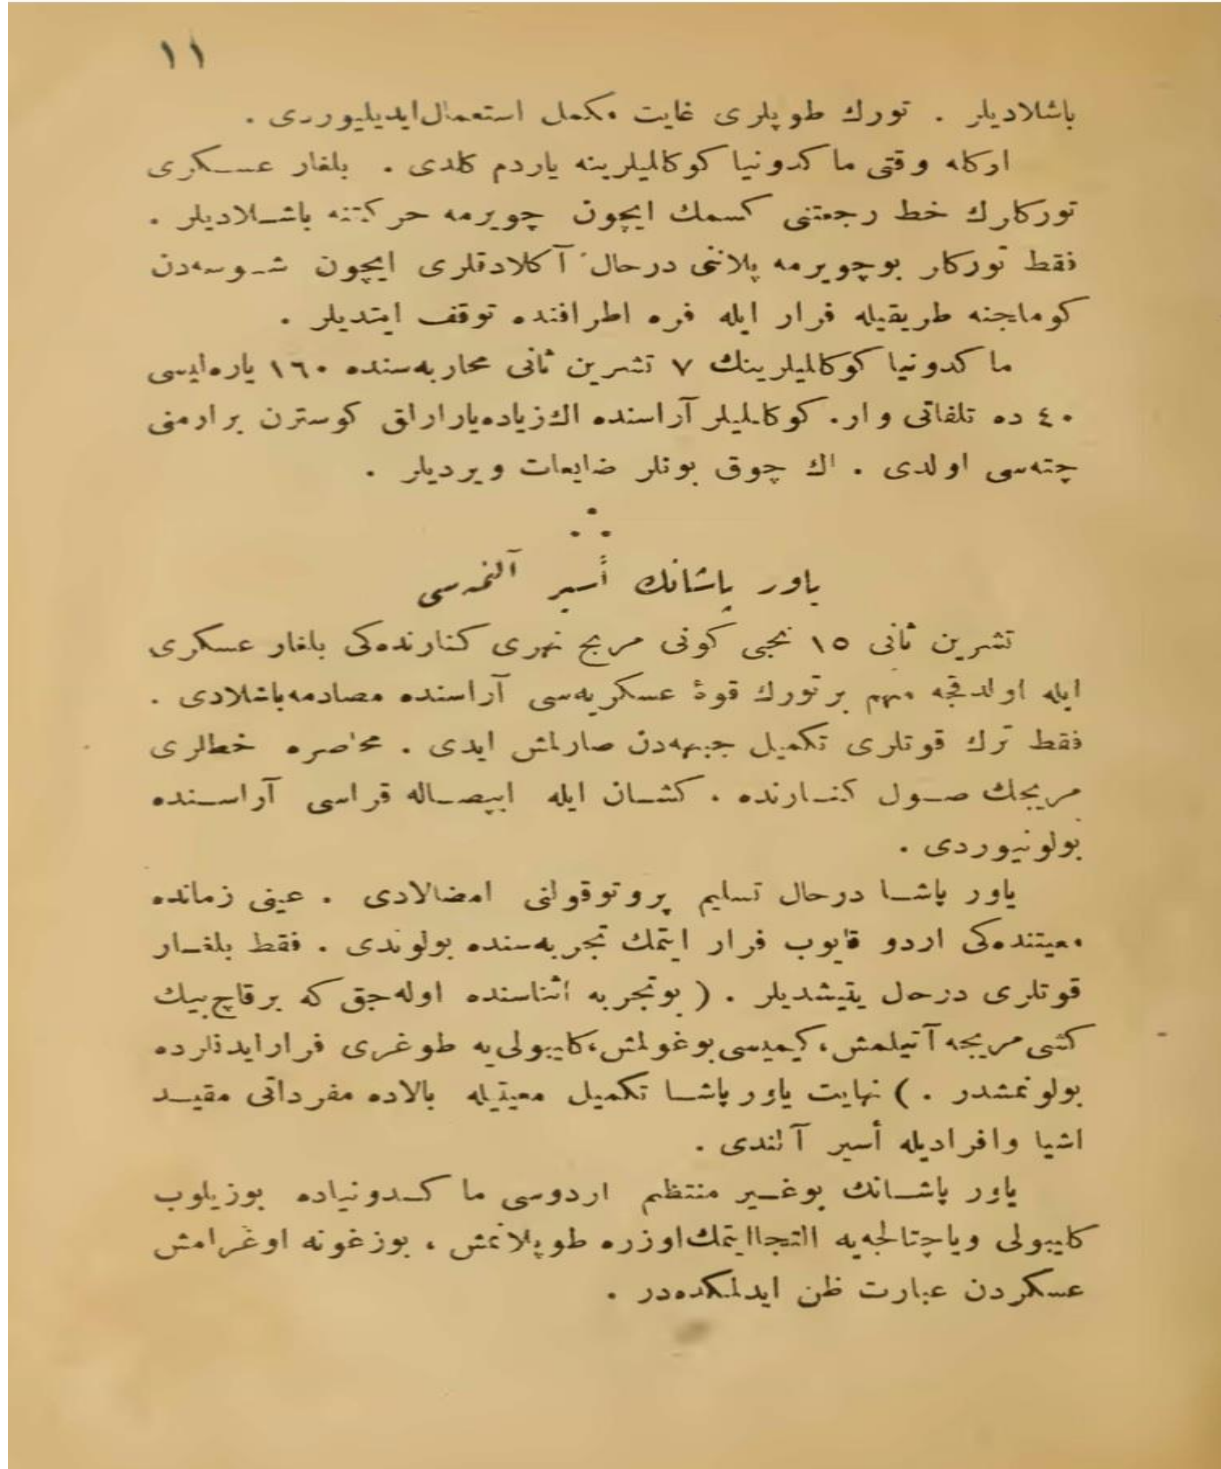 ١١
باشلاديلر . تورك طوپلرى غايت مكمل استعمال ايديليوردى .
اوكله وقتى ماكدونيا كوكلليلرينه ياردم كلدى . بلغار عسكرى
توركلرك خط رجعتنى كسمك ايچون چويرمه حركتنه باشلاديلر .
فقط توركلر بوچويرمه پلاننى درحال آكلادقلرى ايچون شوسه‌دن
كوماجنه طريقيله فرار ايله فره اطرافنده توقف ايتديلر .
ماكدونيا كوكلليلرينك ٧ تشرين ثانى محاربه‌سنده ١٦٠ ياره‌ليسى
٤٠ ده تلفاتى وار. كوكلليلر آراسنده اك زياده يارارلق كوسترن برارمنى
چته‌سى اولدى . اك چوق بونلر ضايعات ويرديلر .
ياور پاشانك أسير آلنمه‌سى
تشرين ثانى ١٥ نجى كونى مريج نهرى كنارنده‌كى بلغار عسكرى
ايله اولدقجه مهم برتورك قوهٔ عسكريه‌سى آراسنده مصادمه باشلادى .
فقط ترك قوتلرى تكميل جبهه‌دن صارلمش ايدى . محاصره خطلرى
مريجك صول كنارنده . كشان ايله ايپصاله قراسى آراسنده
بولونيوردى .
ياور پاشا درحال تسليم پروتوقولنى امضالادى . عينى زمانده
معيتنده‌كى اردو قايوب فرار ايتمك تجربه‌سنده بولوندى . فقط بلغار
قوتلرى درحال يتيشديلر . ( بوتجربه اثناسنده اوله‌جق كه برقاچ بيك
كشى مريجه آتيلمش، كيميسى بوغولمش، كليبولى‌يه طوغرى فرار ايدنلرده
بولونمشدر . ) نهايت ياور پاشا تكميل معيتيله بالاده مفرداتى مقيد
اشيا وافراديله أسير آلندى .
ياور پاشانك بوغير منتظم اردوسى ماكدونياده بوزيلوب
كليبولى وياچتالجه‌يه التجا ايتمك اوزره طوپلانمش ، بوزغونه اوغرامش
عسكردن عبارت ظن ايدلمكده‌در .